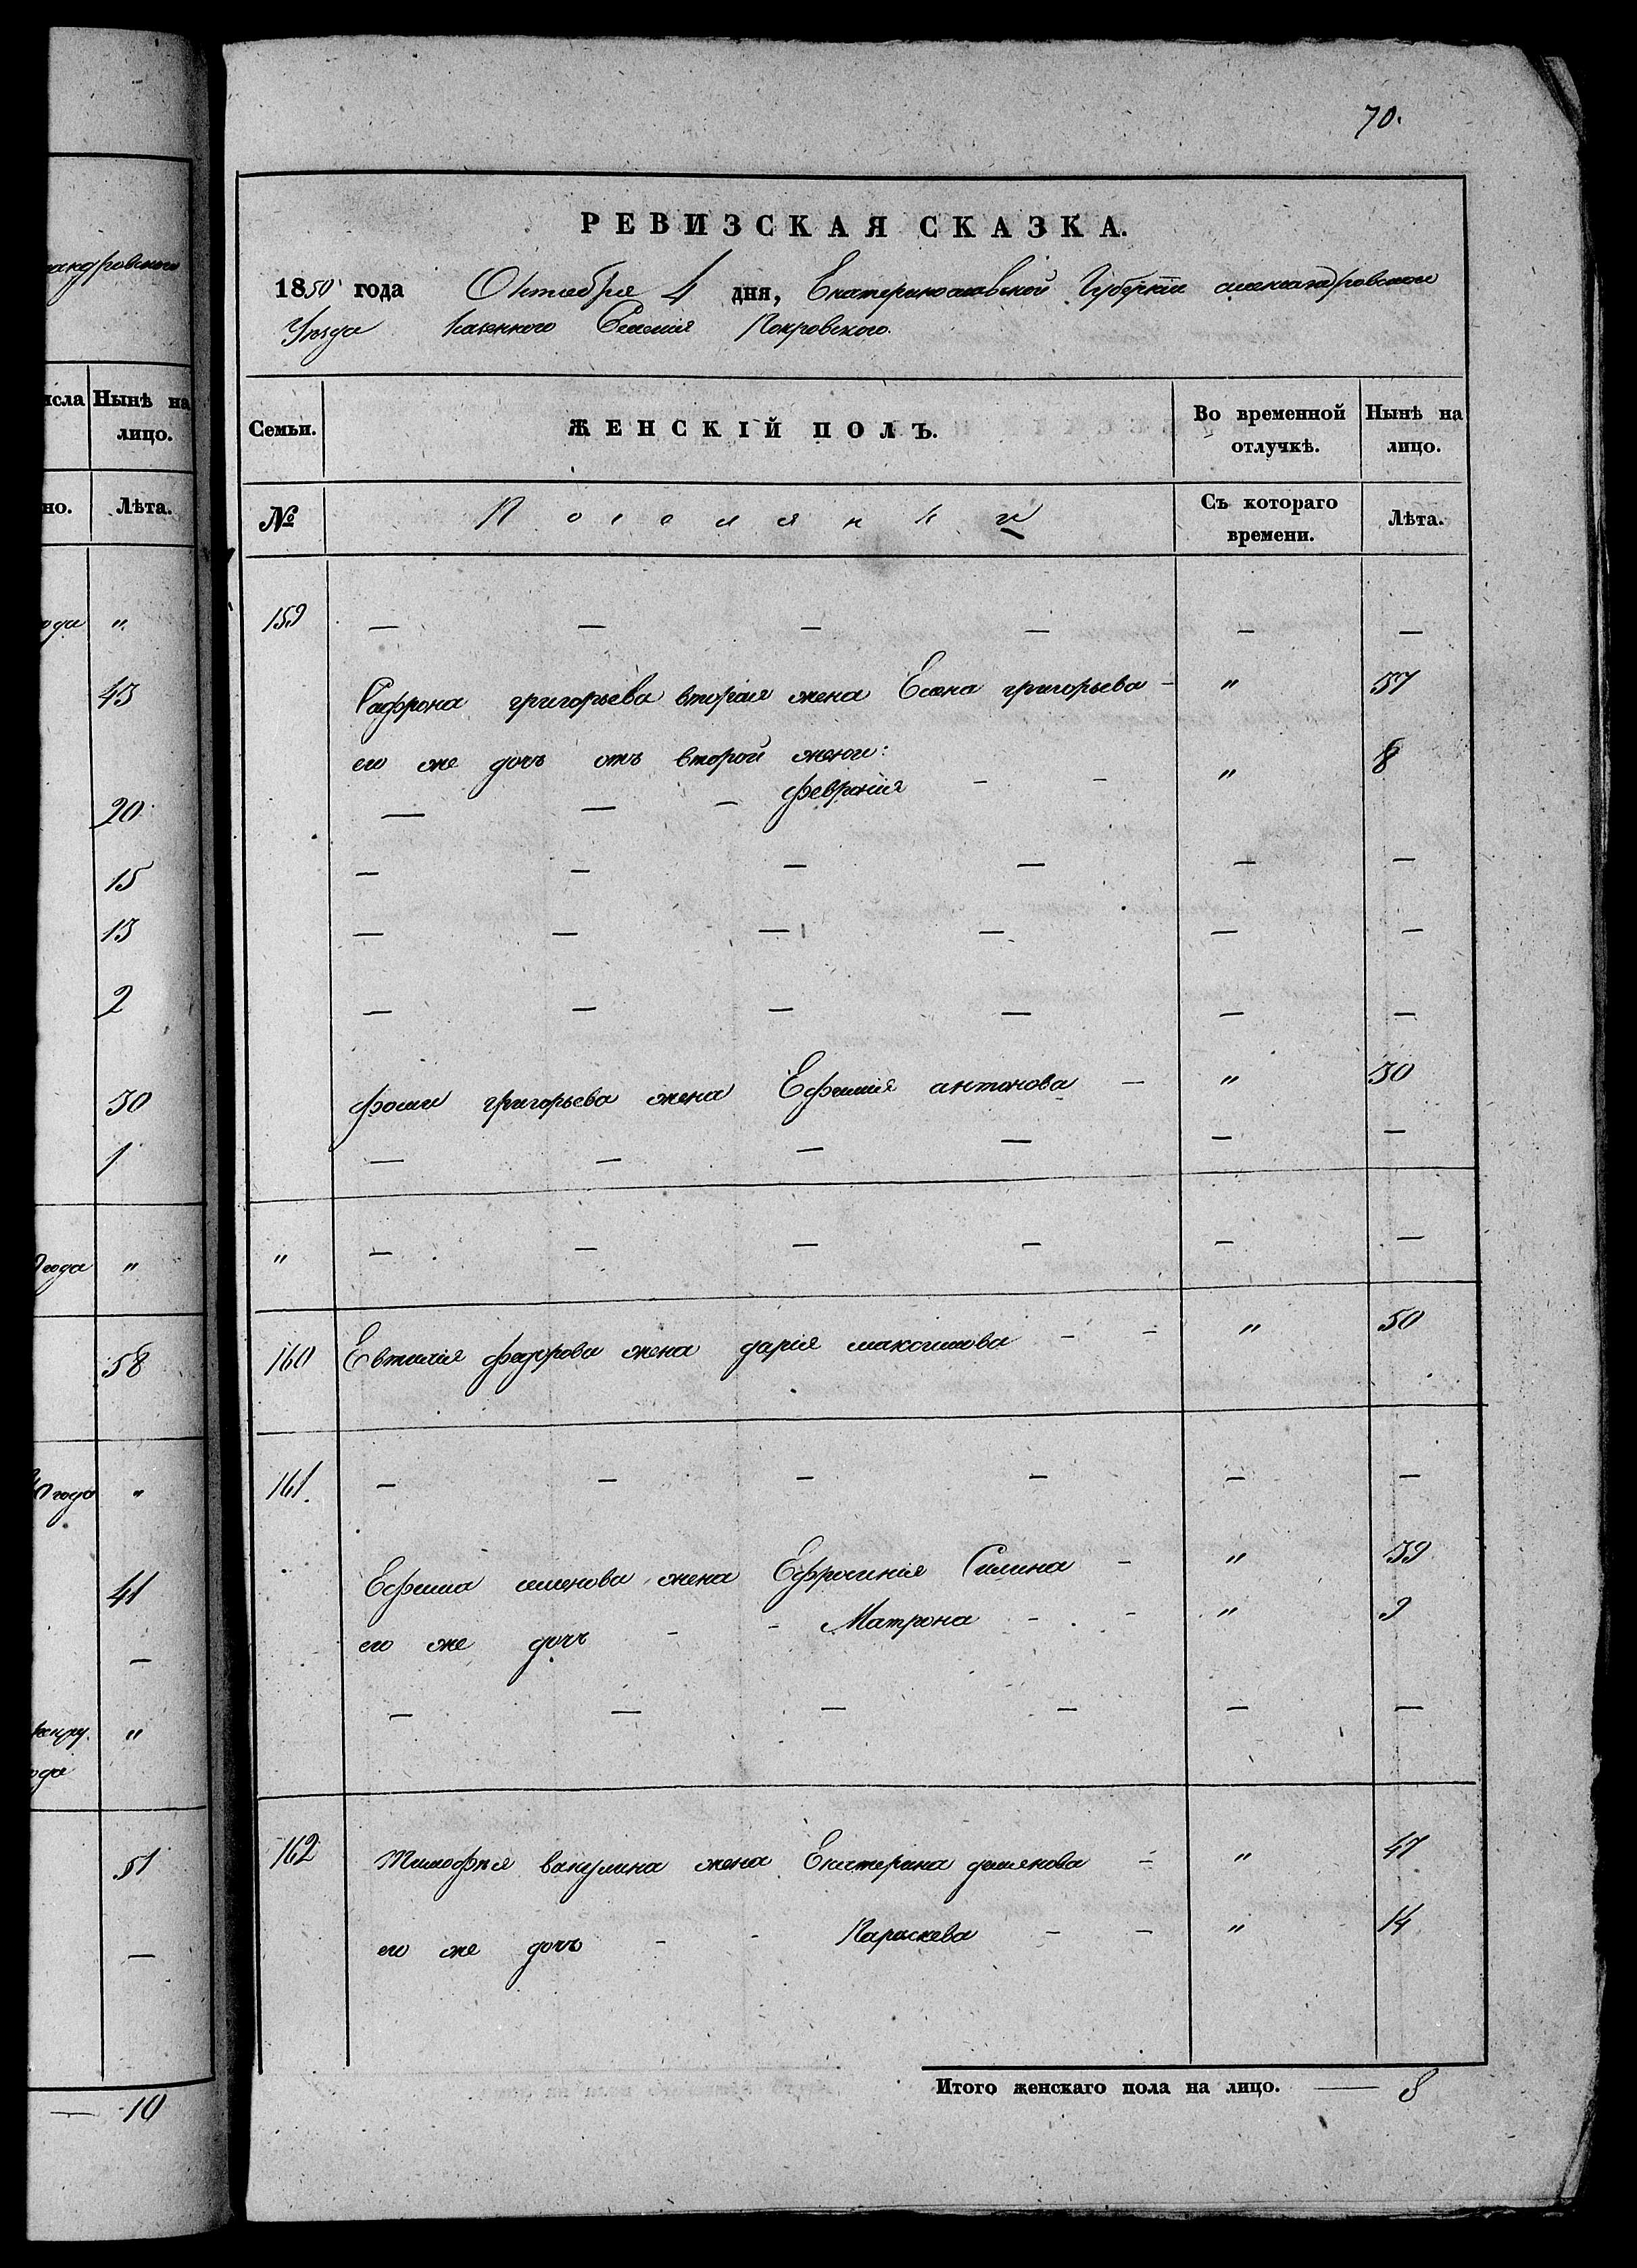 70.
РЕВИЗСКАЯ СКАЗКА.
1850 года Октября 4 дня, Екатеринославской Губерніи александровского
Уѣзда казенного Селенія Покровского.
Семьи. ЖЕНСКІЙ ПОЛЪ. Во временной отлучкѣ. Нынѣ на лицо.
№ Поселянки Съ котораго времени. Лѣта.
159 — — — — — —
Сафрона григорьева вторая жена Елена григорьева - " 37
его же дочь отъ второй жены:
— — - феврония - - " 8
— — — — — —
— — — — — —
— — — — — —
фомы григорьева жена Ефимия антонова — " 30
— — — — — —
" — — — — — —
160 Евтихия федорова жена дарія максимова - - " 50
161. — — — — — —
Ефима семенова жена Ефросиния Силина - " 39
его же дочь - - Матрона - - " 9
— — — — — —
162 Тимофѣя вакулина жена Екатерина демянова - " 47
его же дочь - - Параскева - - " 14
Итого женскаго пола на лицо. — 8
андровского
исла Нынѣ на лицо.
но. Лѣта.
ода "
43
20
15
13
2
30
1
года "
58
года "
41
—
"
ода
51
—
— 10